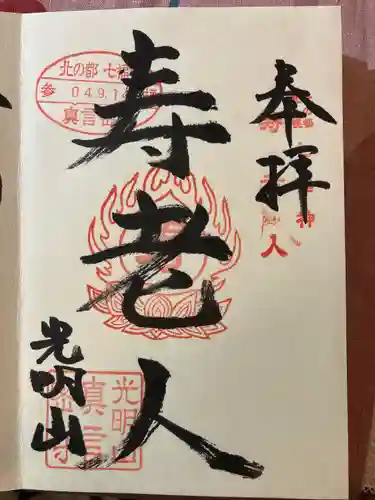 奉拝
寿老人
光明山
北の都 七福
参 04.9.14
真言
人
光明山
真言